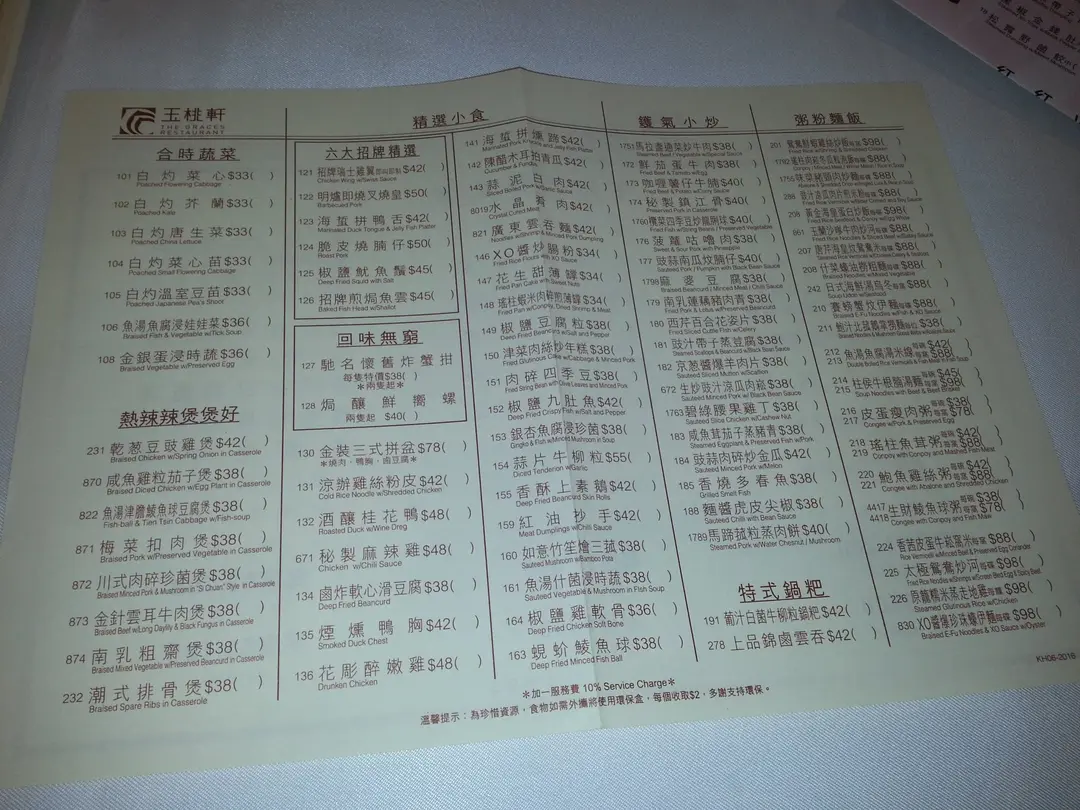 玉桃軒
THE GRACES
RESTAURANT
合時蔬菜
101 白灼菜心$33( )
Poached Flowering Cabbage
102 白灼芥蘭$33( )
Poached Kale
103 白灼唐生菜$33( )
Poached China Lettuce
104 白灼菜心苗$33( )
Poached Small Flowering Cabbage
105 白灼溫室豆苗$33( )
Poached Japanese Pea's Shoot
106 魚湯魚腐浸娃娃菜$36( )
Braised Fish & Vegetable w/Tick Soup
108 金銀蛋浸時蔬$36( )
Braised Vegetable w/Preserved Egg
熱辣辣煲煲好
231 乾葱豆豉雞煲$42( )
Braised Chicken w/Spring Onion in Casserole
870 咸魚雞粒茄子煲$38( )
Braised Diced Chicken w/Egg Plant in Casserole
822 魚湯津膽鯪魚球豆腐煲$38( )
Fish-ball & Tien Tsin Cabbage w/Fish-soup
871 梅菜扣肉煲$38( )
Braised Pork w/Preserved Vegetable in Casserole
872 川式肉碎珍菌煲$38( )
Braised Minced Pork & Mushroom in "Si Chuan" Style in Casserole
873 金針雲耳牛肉煲$38( )
Braised Beef w/Long Daylily & Black Fungus in Casserole
874 南乳粗齋煲$38( )
Braised Mixed Vegetable w/Preserved Beancurd in Casserole
232 潮式排骨煲$38( )
Braised Spare Ribs in Casserole
精選小食
六大招牌精選
121 招牌瑞士雞翼 $42( )
Chicken Wing w/Swiss Sauce
122 明爐即燒叉燒皇$50( )
Barbecued Pork
123 海蜇拼鴨舌$42( )
Marinated Duck Tongue & Jelly Fish Platter
124 脆皮燒腩仔$50( )
Roast Pork
125 椒鹽魷魚鬚$45( )
Deep Fried Squid with Salt
126 招牌煎焗魚雲$45( )
Baked Fish Head w/Shallot
回味無窮
127 馳名懷舊炸蟹拑
每隻特價$38( )
*兩隻起*
128 焗釀鮮嚮螺
兩隻起 $40( )
130 金裝三式拼盆$78( )
*燒肉、鴨胸、鹵豆腐*
131 涼辦雞絲粉皮$42( )
Cold Rice Noodle w/Shredded Chicken
132 酒釀桂花鴨$48( )
Roasted Duck w/Wine Dreg
671 秘製麻辣雞$48( )
Chicken w/Chili Sauce
134 鹵炸軟心滑豆腐$38( )
Deep Fried Beancurd
135 煙燻鴨胸$42( )
Smoked Duck Chest
136 花彫醉嫩雞$48( )
Drunken Chicken
141 海蜇拼燻蹄$42( )
142 陳醋木耳拍青瓜$42( )
Cucumber & Fundus
143 蒜泥白肉$42( )
Sliced Boiled Pork w/Garlic Sauce
8019 水晶肴肉$42( )
Crystal Cured Meat
821 廣東雲吞麵$42( )
Noodles w/Shrimp & Minced Pork Dumpling
146 XO醬炒腸粉$34( )
Fried Rice Flours with XO Sauce
147 花生甜薄罉$34( )
Fried Pan Cake with Sweet Nuts
148 瑤柱蝦米肉碎煎薄罉$34( )
Fried Pan w/Conpoy, Dried Shrimp & Meat
149 椒鹽豆腐粒$38( )
Deep Fried Beancurd w/Salt and Pepper
150 津菜肉絲炒年糕$38( )
Fried Glutinous Cake w/Cabbage & Minced Pork
151 肉碎四季豆$38( )
Fried String Bean with Olive Leaves and Minced Pork
152 椒鹽九肚魚$42( )
Deep Fried Crispy Fish w/Salt and Pepper
153 銀杏魚腐浸珍菌$38( )
Gingko & Fish w/Minced Mushroom in Soup
154 蒜片牛柳粒$55( )
Diced Tenderion w/Garlic
155 香酥上素鵝$42( )
Deep Fried Beancurd Skin Rolls
159 紅油抄手$42( )
Meat Dumplings w/Chilli Sauce
160 如意竹笙燴三菇$38( )
Sauteed Mushroom w/Bamboo Pota
161 魚湯什菌浸時蔬$38( )
Sauteed Vegetable & Mushroom in Fish Soup
164 椒鹽雞軟骨$36( )
Deep Fried Chicken Soft Bone
163 蜆蚧鯪魚球$38( )
Deep Fried Minced Fish Ball
鑊氣小炒
1751 馬拉盞通菜炒牛肉$38( )
172 鮮茄蛋牛肉$38( )
Fried Beef & Tamato w/Egg
173 咖喱薯仔牛腩$40( )
Fried Beef & Potato w/Curry Sauce
174 秘製鎮江骨$40( )
Preserved Pork in Casserole
1760 欖菜四季豆炒龍脷球$40( )
Fried Fish w/String Beans / Preserved Vegetable
176 菠蘿咕嚕肉$38( )
Sweet & Sour Pork with Pineapple
177 豉蒜南瓜炆腩仔$40( )
Sauteed Pork / Pumpkin with Black Bean Sauce
1798 麻婆豆腐$38( )
Braised Beancurd / Minced Meat / Chili Sauce
179 南乳蓮藕豬肉青$38( )
180 西芹百合花姿片$38( )
Fried Sliced Cuttle Fish w/Celery
181 豉汁帶子蒸豆腐$38( )
Steamed Scallops & Beancurd w/Black Bean Sauce
182 京葱醬爆羊肉片$38( )
Sauteed Sliced Mutton w/Scallion
672 生炒豉汁涼瓜肉崧$38( )
Sauteed Minced Pork w/ Black Bean Sauce
1763 碧綠腰果雞丁$38( )
Sauteed Slice Chicken w/Cashaw Nut
183 咸魚茸茄子蒸豬青$38( )
Steamed Eggplants & Preserved Fish w/Pork
184 豉蒜肉碎炒金瓜$42( )
Sauteed Minced Pork w/Melon
185 香燒多春魚$38( )
Grilled Smelt Fish
188 麵醬虎皮尖椒$38( )
Sauteed Chilli with Bean Sauce
1789 馬蹄菰粒蒸肉餅$40( )
Steamed Pork w/Water Chesnut / Mushroom
特式鍋粑
191 葡汁白菌牛柳粒鍋粑$42( )
278 上品錦鹵雲吞$42( )
粥粉麵飯
201 $98( )
208 什菜蠔油撈粗麵 $88( )
Braised Noodles w/Mixed Vegetable
242 日式海鮮湯烏冬 $88( )
Soup Udon w/Seafood
210 賽螃蟹炆伊麵 $98( )
212
213 魚湯魚腐湯米線 $42( ) $88( )
214
215 柱侯牛根腩湯麵 $45( ) $98( )
Soup Noodles with Beef & Beef
216
217 皮蛋瘦肉粥 $38( ) $78( )
Congee w/Pork & Preserved Egg
218
219 瑤柱魚茸粥 $42( ) $88( )
Conpoy with Congee and Mashed Fish Meat
220
221 鮑魚雞絲粥 $42( ) $88( )
Congee with Abalone and Shredded Chicken
4417
4418 生財鯪魚球粥 $38( ) $78( )
Congee with Conpoy and Fish Maw
224 香茜皮蛋牛崧窩米 $88( )
Rice Vermicelli w/Minced Beef & Preserved Egg Coriander
225 太極鴛鴦炒河 $98( )
226 原籠糯米蒸走地雞 $98( )
Steamed Glutinous Rice w/Chicken
830 XO醬爆珍珠蠔伊麵 $98( )
Braised E-Fu Noodles & XO Sauce w/Oyster
KH06-2016
*加一服務費 10% Service Charge*
溫馨提示：為珍惜資源，食物如需外攜將使用環保盒，每個收取$2，多謝支持環保。